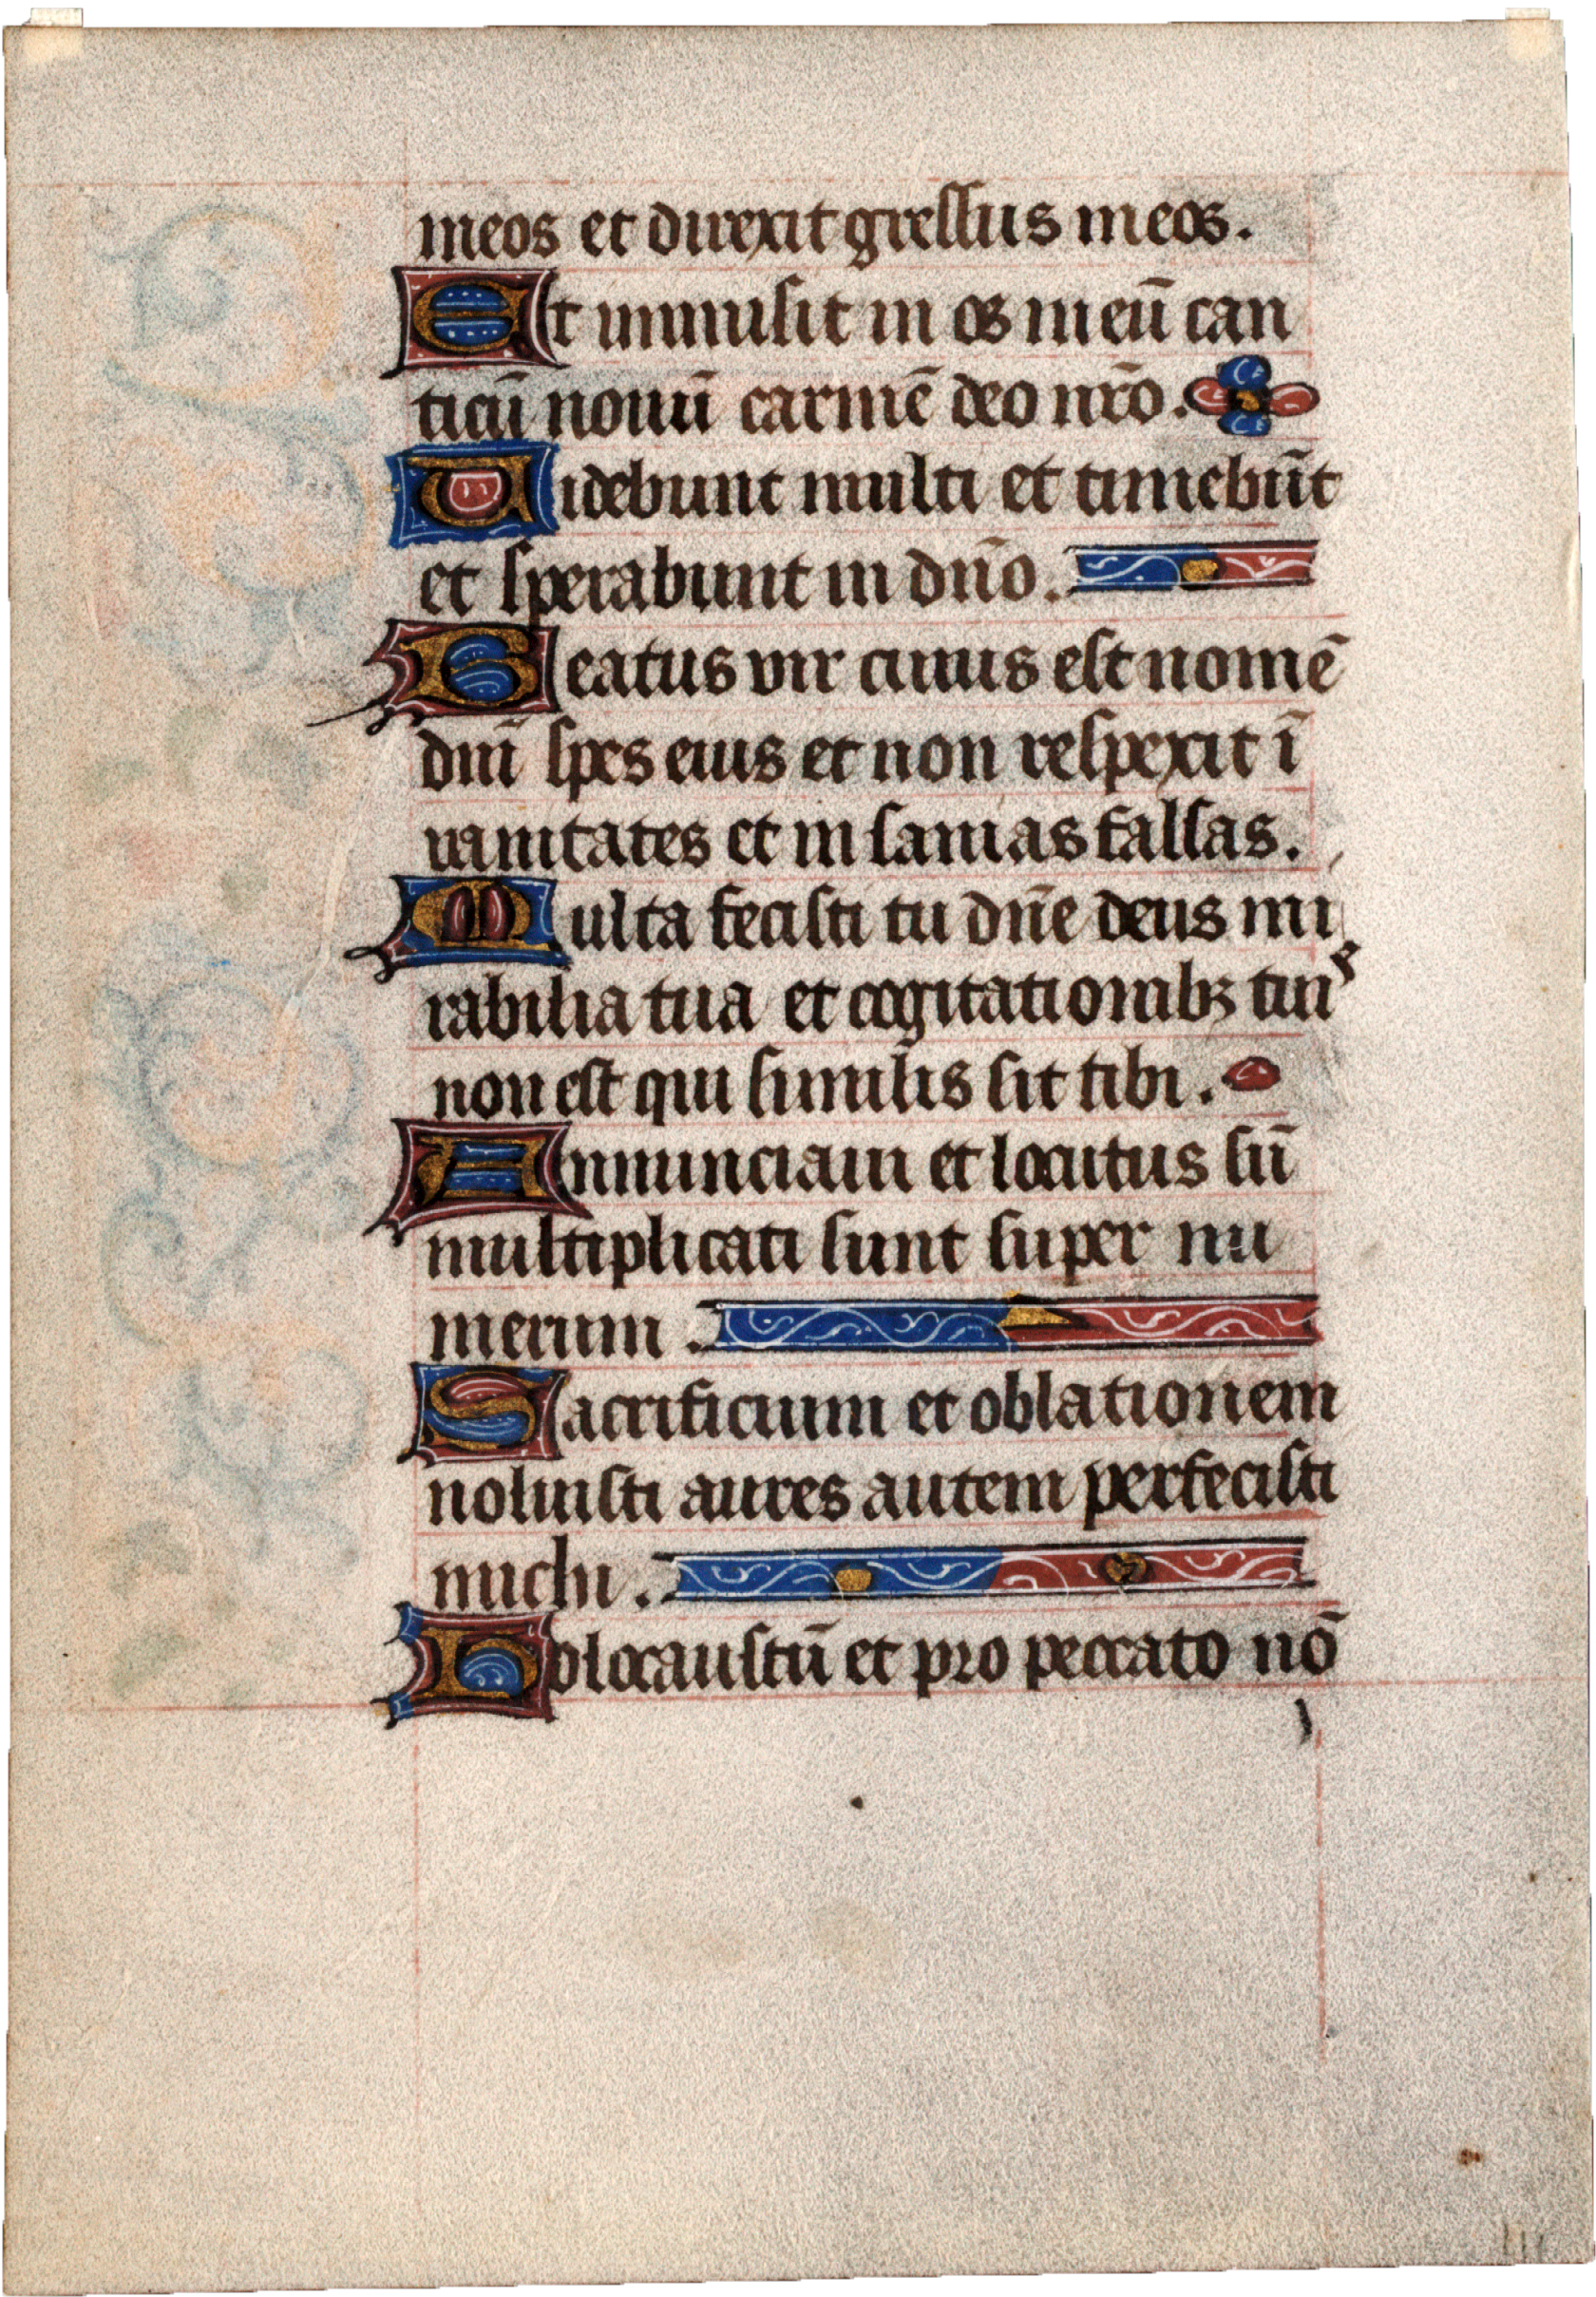 meos et direxit gressus meos.
Et immisit in os meū can
ticū nouū carmē deo nr̄o.
Uidebunt multi et timebūt
et sperabunt in dn̄o.
Beatus vir cuius est nomē
dn̄i spes eius et non respexit ī
uanitates et insanias falsas.
Multa fecisti tu dn̄e deus mi
rabilia tua et cogitationibꝫ tuis
non est qui similis sit tibi.
Annunciaui et locutus sū
multiplicati sunt super nu
merum.
Sacrificium et oblationem
noluisti aures autem perfecisti
michi.
Holocaustū et pro peccato nō